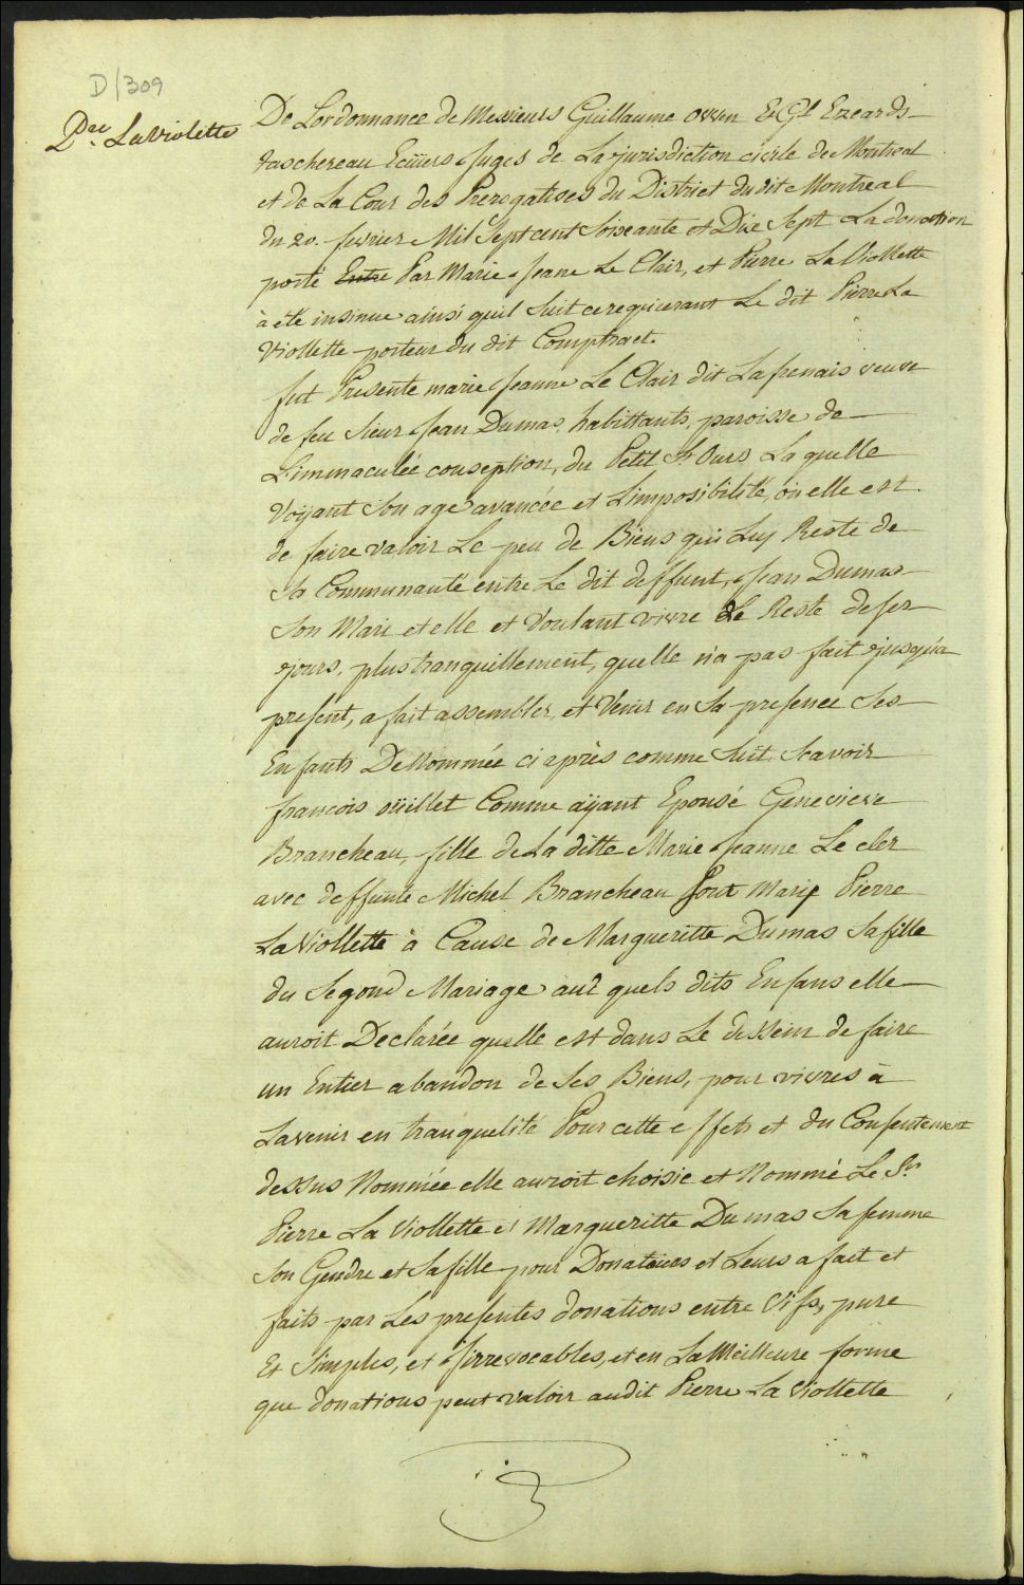 D/309
Pre. LaViolette
De Lordonnance de Messieurs Guillaume owen Et Gl Ezeards
taschereau Ecüiers Juges de La jurisdiction civile de Montreal
et de La Cour des Prerogatives du District du dit Montreal
du 20. fevrier Mil Sept cent Soixante et Dix Sept La donation
porté Entre Par Marie Jeane Le Clair, et Pierre La Viollette
à été insinue ainsi quil Suit ce requierant Le dit Pierre La
Viollette porteur du dit Comptract.
fut Presente marie Jeanne Le Clair dit Lafrenais veuve
de feu Sieur Jean Dumas, habittants, paroisse de
L'immaculée conseption, du Petit St Ours La quelle
Voyant Son age avancée et Limposibilité, où elle est
de faire valoir Le peu de Biens qui Luy Reste de
Sa Communauté entre Le dit deffunt, Jean Dumas
Son Mari et elle et Voulant vivre Le Reste de ses
jours, plus tranquillement, quelle n'a pas fait jusqu'a
present, a fait assembler, et Venir en Sa presence Ses
Enfants Denommée ci après comme Suit Scavoir
francois oüillet Comme aÿant Epousé Genevieve
Brancheau, fille de La ditte Marie Jeanne Le cler
avec deffunte Michel Brancheau Sont Marie Pierre
La Viollette à Cause de Margueritte Dumas Sa fille
du Segond Mariage aux quels dits Enfans elle
auroit Declarée quelle est dans Le dessein de faire
un Entier abandon de Ses Biens, pour vivres à
Lavenir en tranquelité Pour cette effets et du Consentement
dessus Nommée elle auroit choisie et Nommé Le Sr.
Pierre La Viollette et Margueritte Dumas Sa femme
Son Gendre et Sa fille pour Donataires et Leurs a fait et
faits par Les presentes donations entre Vifs, pure
Et Simples, et Jirrevocables, et en La Meilleure forme
que donations peut valoir audit Pierre La Viollette